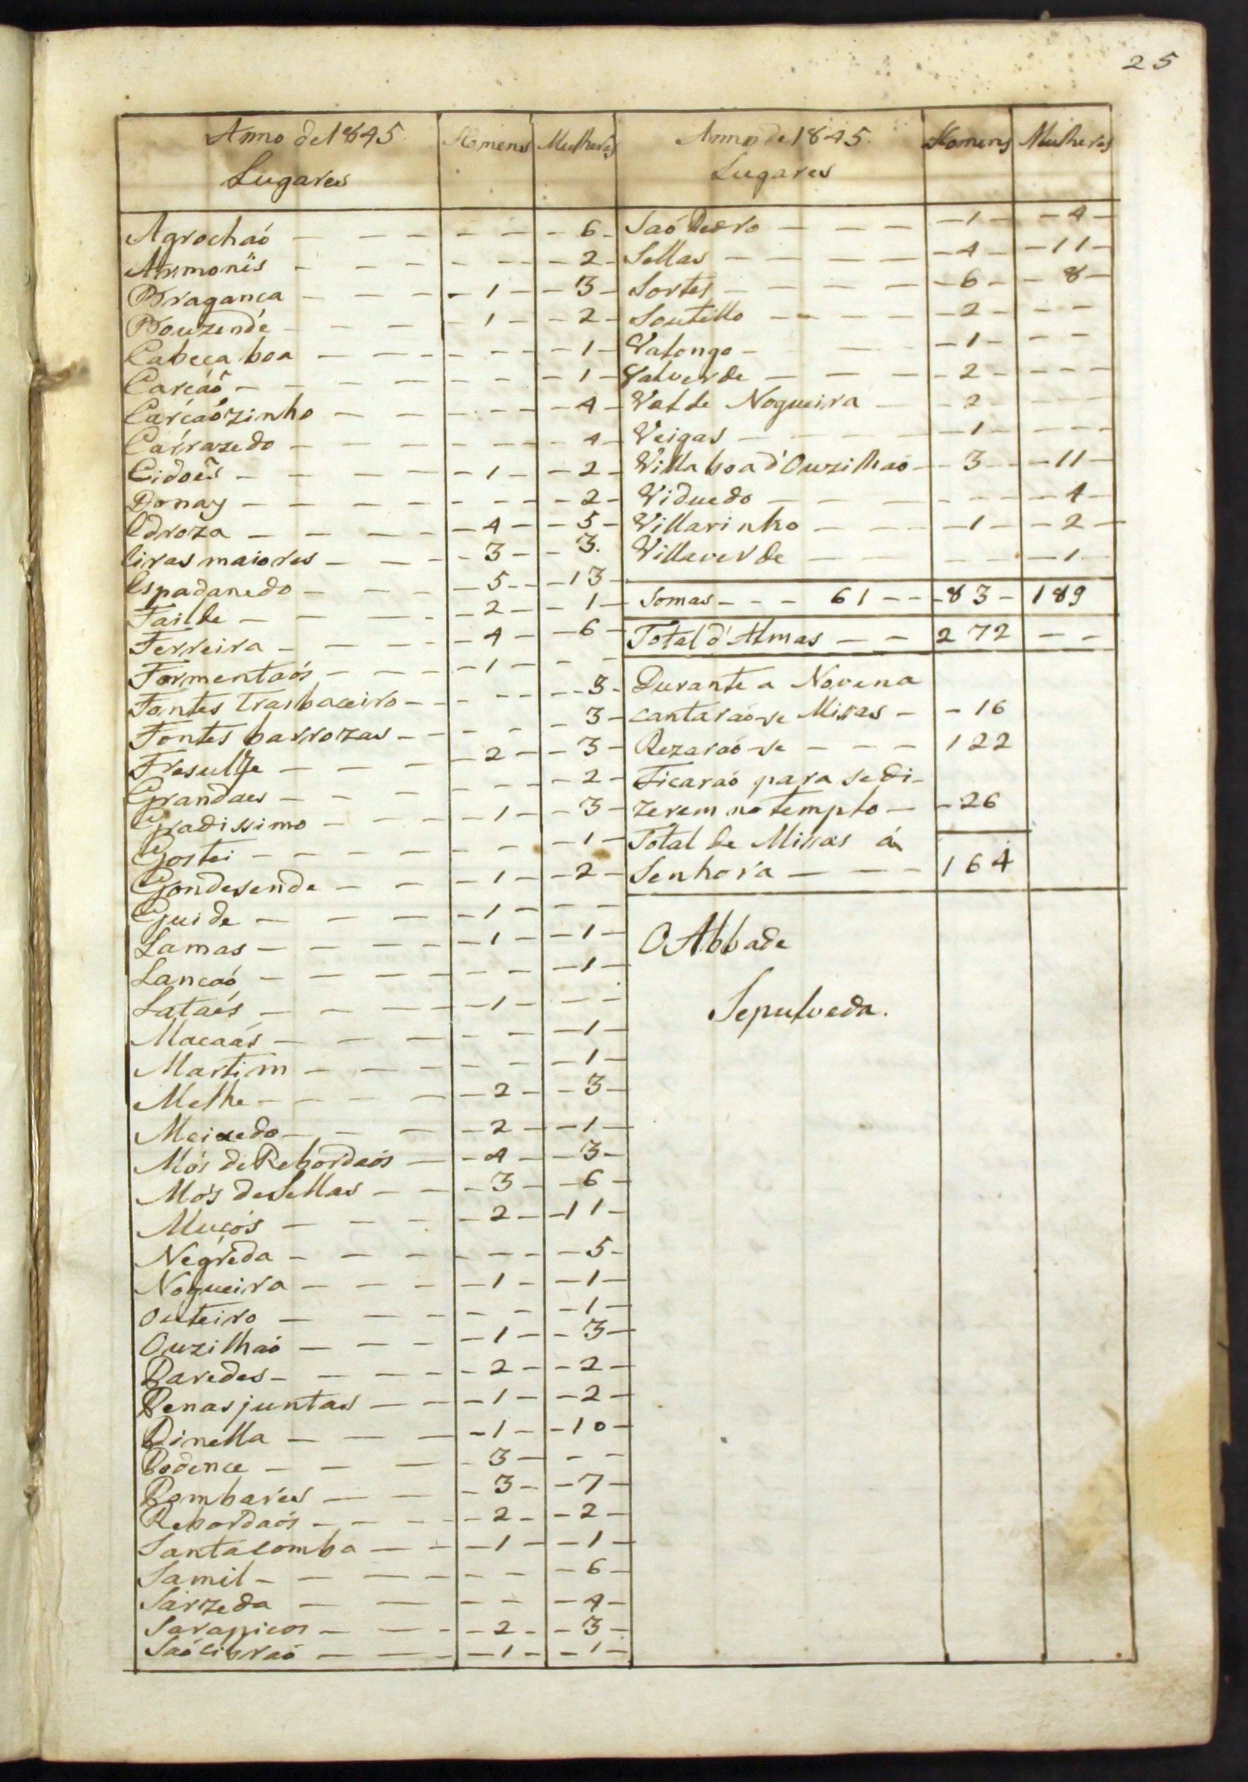 25
Anno de 1845. Homens Mulheres
Lugares
Agrochaõ — — — — — — 6 —
Ansmonis — — — — — — 2 —
Bragança — — — — 1 — — 3 —
Bouzende — — — — 1 — — 2 —
Cabeça boa — — — — — — 1 —
Carçaõ — — — — — — 1 —
Carcaõzinho — — — — — — 4 —
Carrazedo — — — — — — 4 —
Cidoẽs — — — — 1 — — 2 —
Donay — — — — — — 2 —
Edroza — — — — 4 — — 5 —
Eiras maiores — — — 3 — — 3.
Espadanedo — — — 5 — — 13
Failde — — — — 2 — — 1 —
Ferreira — — — — 4 — — 6 —
Formentaõs — — — 1 — — —
Fontes Trasbaceiro — — — — 3 —
Fontes barrozas — — — — 3 —
Fresulfe — — — 2 — — 3 —
Grandaes — — — — — 2 —
Gradissimo — — — 1 — — 3 —
Gostei — — — — — — 1 —
Gondesende — — — 1 — — 2 —
Guide — — — — 1 — — —
Lamas — — — — 1 — — 1 —
Lançaõ — — — — — — 1 —
Lataẽs — — — — 1 — — —
Macaãs — — — — — — 1 —
Martim — — — — — — 1 —
Melhe — — — — 2 — — 3 —
Meixedo — — — — 2 — — 1 —
Mós de Rebordaõs — — 4 — — 3 —
Mós de Sellas — — 3 — — 6 —
Muçós — — — — 2 — — 11 —
Negreda — — — — — — 5 —
Nogueira — — — — 1 — — 1 —
Outeiro — — — — — — 1 —
Ouzilhaõ — — — — 1 — — 3 —
Paredes — — — — 2 — — 2 —
Penas juntas — — — 1 — — 2 —
Pinella — — — — 1 — — 10 —
Podence — — — — 3 — — —
Pombares — — — 3 — — 7 —
Rebordaõs — — — — 2 — — 2 —
Santa comba — — — 1 — — 1 —
Samil — — — — — — 6 —
Sarzeda — — — — — — 4 —
Sarapicos — — — 2 — — 3 —
Saõ Cibraõ — — — 1 — — 1 —
Anno de 1845. Homens Mulheres
Lugares
Saõ Pedro — — — — 1 — — 4 —
Sellas — — — — 4 — — 11 —
Sortes — — — — 6 — — 8 —
Soutello — — — — 2 — — —
Valongo — — — 1 — — —
Valverde — — — 2 — — —
Val de Nogueira — 2 — — —
Veigas — — — — 1 — — —
Villa boa d'Ouzilhaõ — 3 — — 11 —
Viduedo — — — — — — 4 —
Villarinho — — — 1 — — 2 —
Villaverde — — — — 1 —
Somas — — — 61 — — 83 — 189
Total d'Almas — — 272 — —
Durante a Novena
cantaraõ-se Missas — — 16
Rezaraõ-se — — — 122
Ficaraõ para se di-
zerem no templo — — 26
Total de Missas á
Senhora — — — 164
O Abbade
Sepulveda.